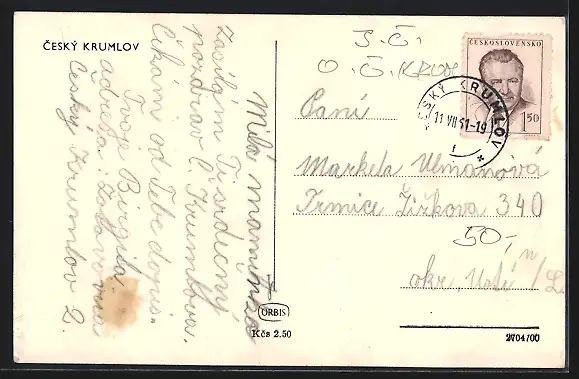 ČESKÝ KRUMLOV
Milá maminko
zasílám Ti srdečný
pozdrav Č. Krumlova.
Čekám od Tebe dopis.
Tvoje Birgita
adresa:
Český Krumlov 2.
J. Č.
O. Č. KRUM
ČESKOSLOVENSKO
1.50
ČESKÝ KRUMLOV
11 VII 51-19
f
Paní
Marketa Ulmanová
Trmice Žižkova 340
50,-
okr. Ústí n/L.
ORBIS
Kčs 2.50
2704/00